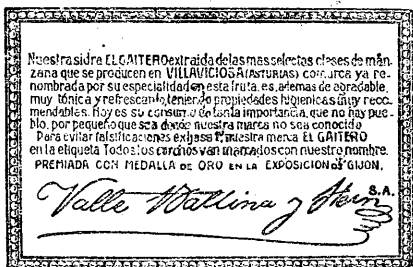 Nuestra sidra EL GAITERO extraida de las mas selectas clases de man-
zana que se producen en VILLAVICIOSA (ASTURIAS) comarca ya re-
nombrada por su especialidad en esta fruta, es, ademas de agradable,
muy tónica y refrescante, teniendo propiedades higienicas muy reco-
mendables. Hoy es su consumo de tanta importancia, que no hay pue-
blo, por pequeño que sea donde nuestra marca no sea conocida
Para evitar falsificaciones exijase nuestra marca EL GAITERO
en la etiqueta Todos los corchos van marcados con nuestro nombre.
PREMIADA CON MEDALLA DE ORO EN LA EXPOSICION de GIJON.
Valle Ballina y Fern S.A.